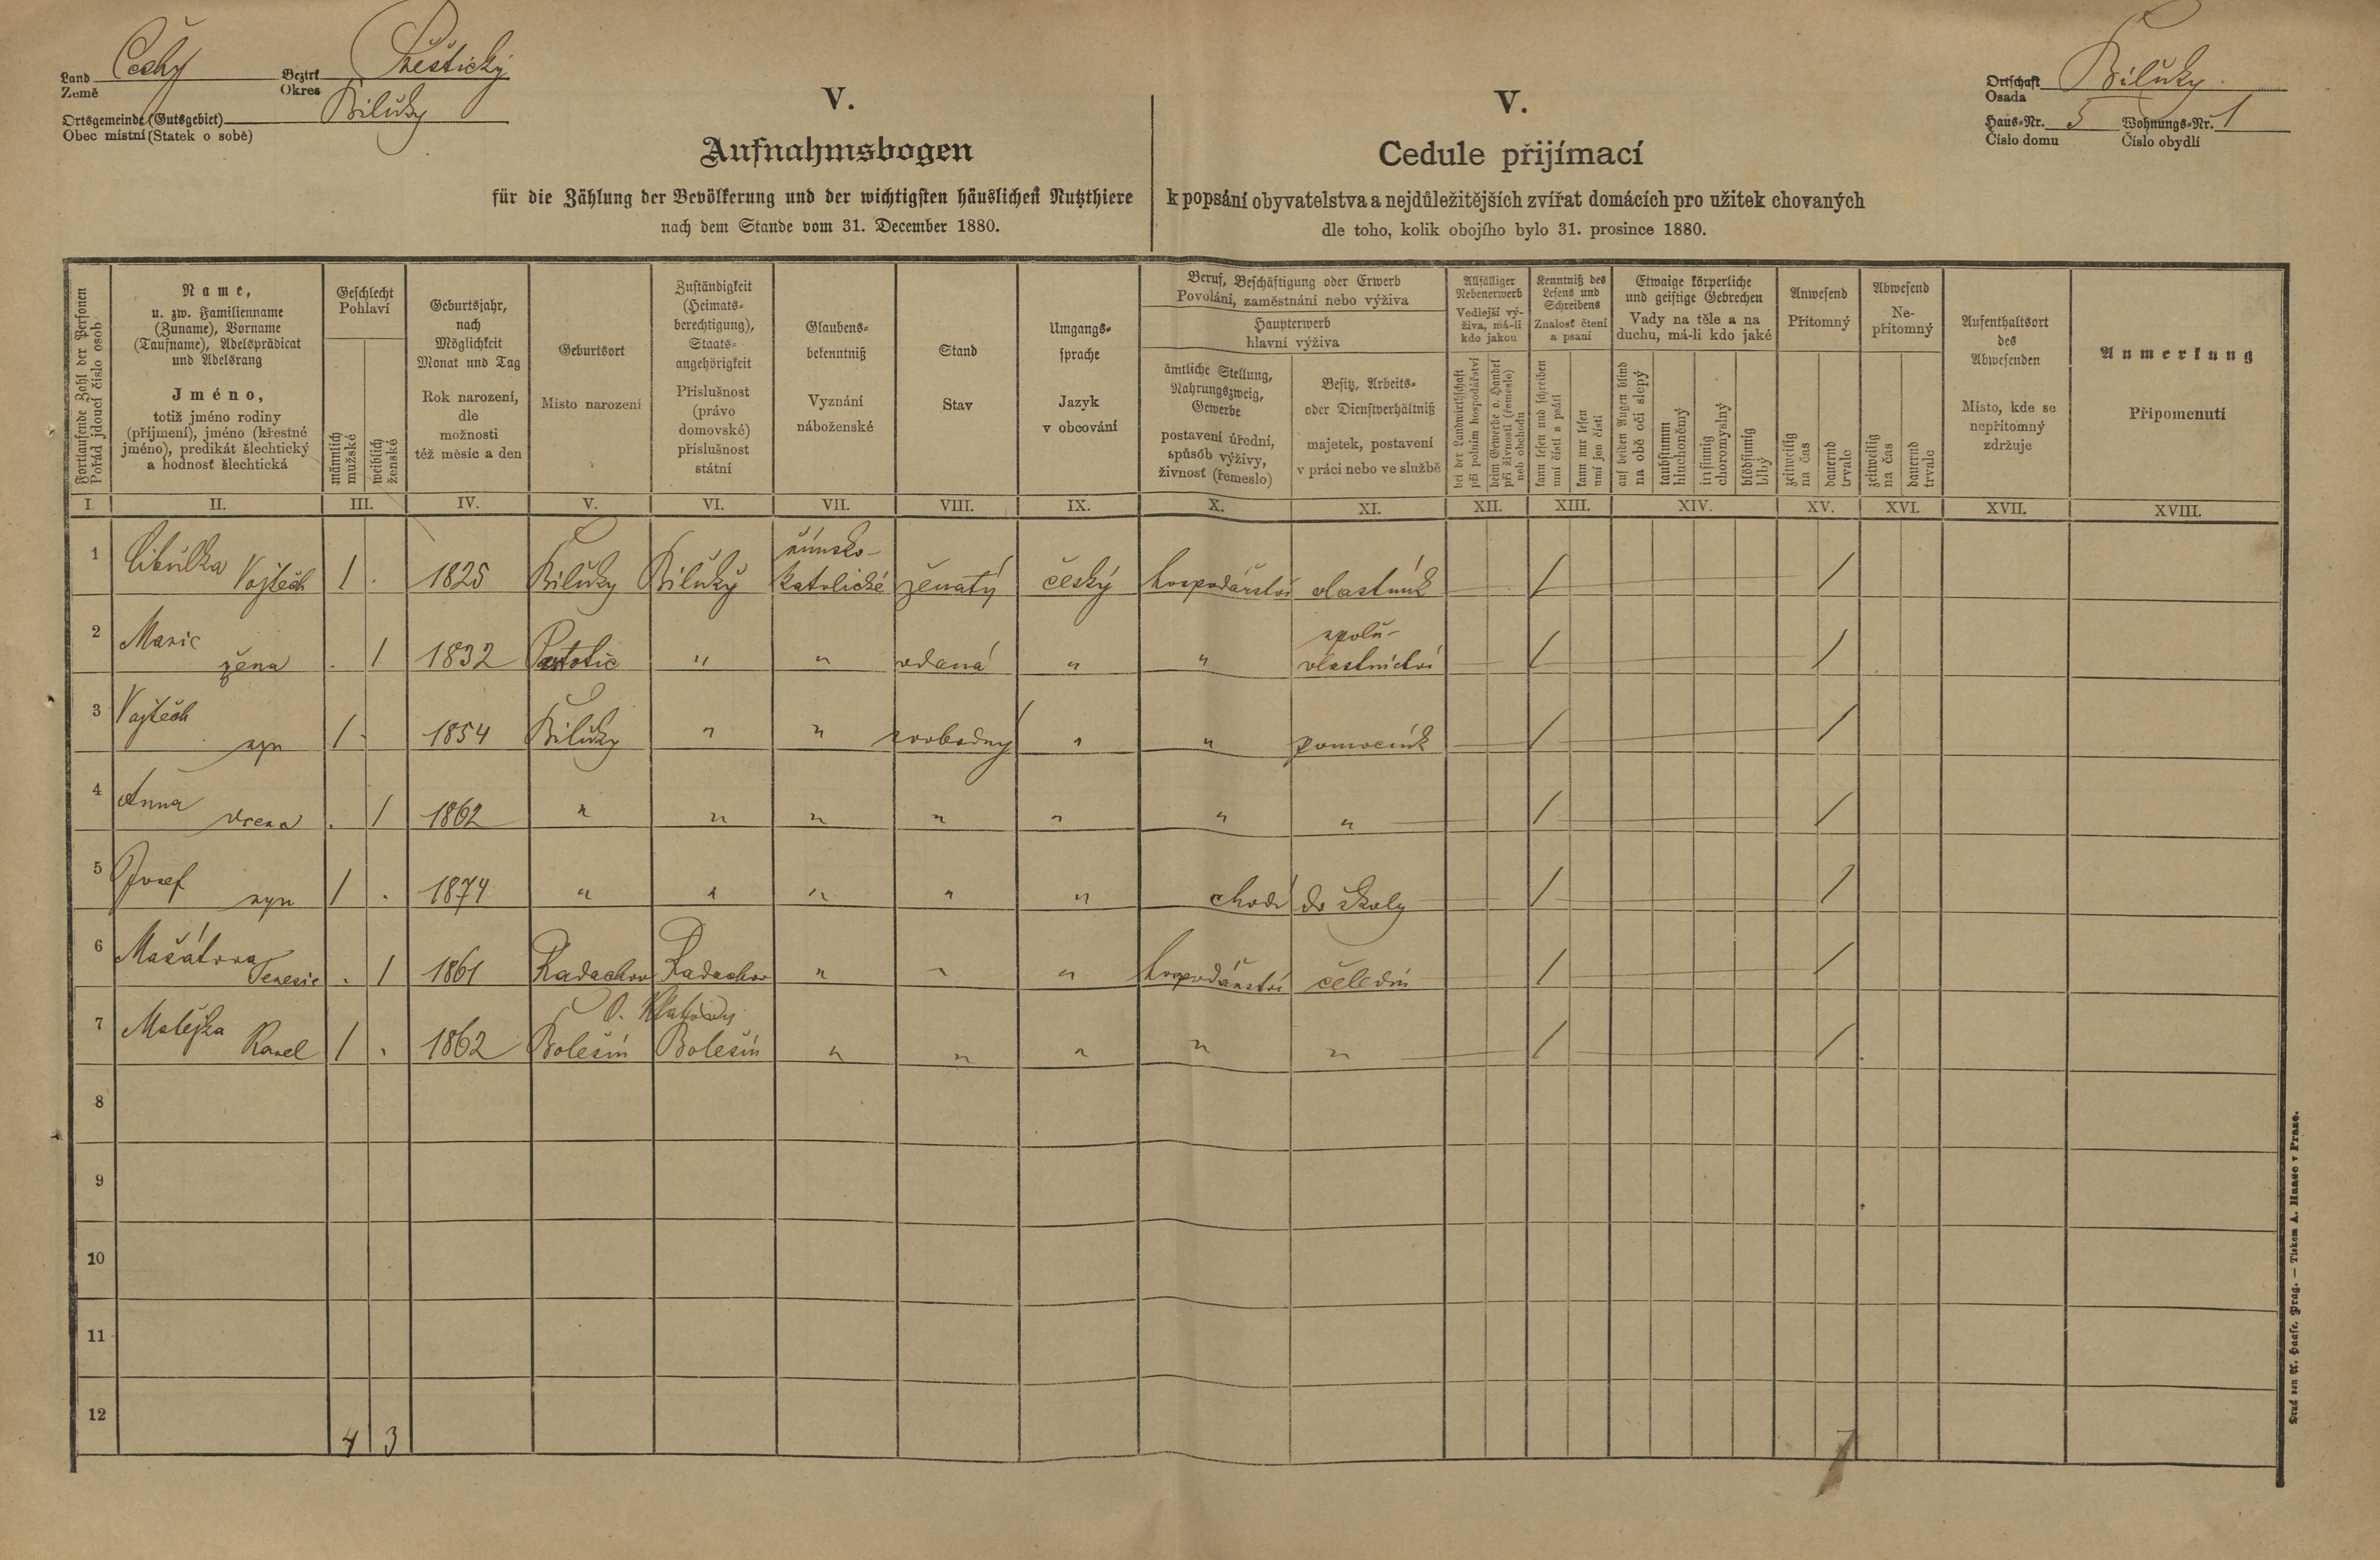 Land Česky Bezirk Přeštický
Země Okres
Ortsgemeinde (Gutsgebiet) Bilůky
Obec místní (Statek o sobě)
V.
Aufnahmsbogen
für die Zählung der Bevölkerung und der wichtigsten häuslichen Nutzthiere
nach dem Stande vom 31. December 1880.
V.
Cedule přijímací
k popsání obyvatelstva a nejdůležitějších zvířat domácích pro užitek chovaných
dle toho, kolik obojího bylo 31. prosince 1880.
Ortschaft Bilůky
Osada
Haus-Nr. 5 Wohnungs-Nr. 1
Číslo domu Číslo obydlí
Fortlaufende Zahl der Personen
Pořád jdoucí číslo osob
Name,
u. zw. Familienname
(Zuname), Vorname
(Taufname), Adelsprädicat
und Adelsrang
Jméno,
totiž jméno rodiny
(příjmení), jméno (křestné
jméno), predikát šlechtický
a hodnosť šlechtická
Geschlecht
Pohlaví
männlich
mužské
weiblich
ženské
Geburtsjahr,
nach
Möglichkeit
Monat und Tag
Rok narození,
dle
možnosti
též měsíc a den
Geburtsort
Místo narození
Zuständigkeit
(Heimats-
berechtigung),
Staats-
angehörigkeit
Příslušnost
(právo
domovské)
příslušnost
státní
Glaubens-
bekenntniß
Vyznání
náboženské
Stand
Stav
Umgangs-
sprache
Jazyk
v obcování
Beruf, Beschäftigung oder Erwerb
Povolání, zaměstnání nebo výživa
Haupterwerb
hlavní výživa
ämtliche Stellung,
Nahrungszweig,
Gewerbe
postavení úřední,
spůsob výživy,
živnosť (řemeslo)
Besitz, Arbeits-
oder Dienstverhältniß
majetek, postavení
v práci nebo ve službě
Allfälliger
Nebenerwerb
Vedlejší vý-
živa, má-li
kdo jakou
bei der Landwirthschaft
při polním hospodářství
beim Gewerbe o. Handel
při živnosti (řemeslo)
neb obchodu
Kenntniß des
Lesens und
Schreibens
Znalosť čtení
a psaní
kann lesen und schreiben
umí čísti a psáti
kann nur lesen
umí jen čísti
Etwaige körperliche
und geistige Gebrechen
Vady na těle a na
duchu, má-li kdo jaké
auf beiden Augen blind
na obě oči slepý
taubstumm
hluchoněmý
irrsinnig
choromyslný
blödsinnig
blbý
Anwesend
Přítomný
zeitweilig
na čas
dauernd
trvale
Abwesend
Ne-
přítomný
zeitweilig
na čas
dauernd
trvale
Aufenthaltsort
des
Abwesenden
Místo, kde se
nepřítomný
zdržuje
Anmerkung
Připomenutí
I. II. III. IV. V. VI. VII. VIII. IX. X. XI. XII. XIII. XIV. XV. XVI. XVII. XVIII.
1 Cibulka Vojtěch / . 1825 Bilůky Bilůky římsko-
katolické ženatý český hospodářství vlastník / /
2 Marie žena . / 1832 " " vdaná " " spolu-
vlastnictví / /
3 Vojtěch syn / . 1854 Bilůky " " svobodný " " pomocník / /
4 Anna dcera . / 1862 " " " " " " " / /
5 Josef syn / . 1874 " " " " " chodí do školy / /
6 Mašátova Terezie . / 1861 Radachov Radachov " " " hospodářství čeledín / /
O. Klatovy
7 Matějka Karel / . 1862 Bolešin Bolešin " " " " " / /
8
9
10
11
12
4 3 7
Druck von A. Haase, Prag. — Tiskem A. Haase v Praze.